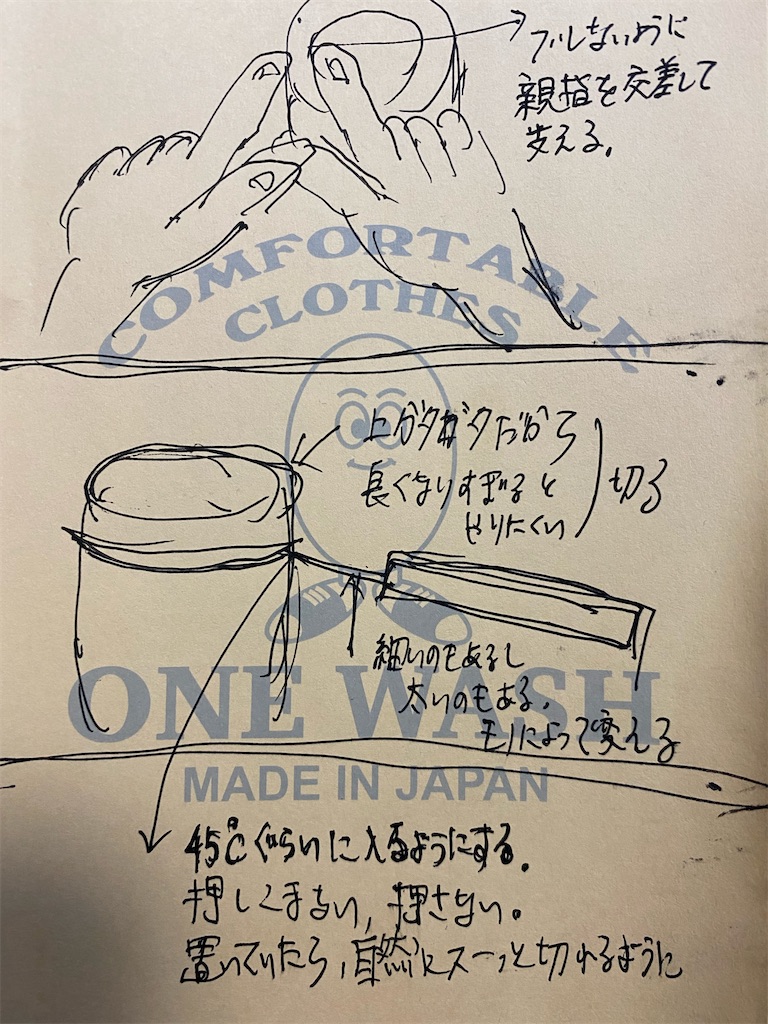 ブレしないように
親指を交差して
支える。
COMFORTABLE
CLOTHES
上ガタガタだから
長くなりすぎると
やりにくい
切る
細いのもあるし
太いのもある。
モノによって変える
ONE WASH
MADE IN JAPAN
45℃ぐらいに入るようにする。
押しこまない,押さない。
置いていたら,自然にスーっと切れるように